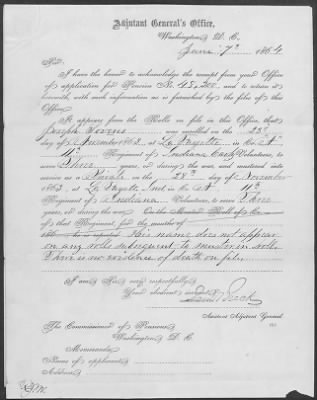 Adjutant General's Office,
Washington, D. C.
June 7th 1864
Sir:
I have the honor to acknowledge the receipt from your Office
of application for Pension No. and to return it
herewith, with such information as is furnished by the files of this
Office.
It appears from the Rolls on file in this Office, that
Joseph was enrolled on the 23d
day of November 1863, at La Fayette in Co. "A"
11th Regiment of Indiana Cavy Volunteers, to
serve Three years, or during the war, and mustered into
service as a Private on the 28th day of November
1863, at La Fayette Ind in Co. "A" 11th
Regiment of Indiana Volunteers, to serve Three
years, or during the war. On the Muster Roll of Co.
of that Regiment, for the months of
186 , he is reported His name does not appear
on any rolls subsequent to muster in roll.
There is no evidence of death on file.
I am, Sir, very respectfully,
Your obedient servant,
Assistant Adjutant General.
The Commissioner of Pensions,
Washington, D. C.
Memoranda:
Name of applicant,
Address,